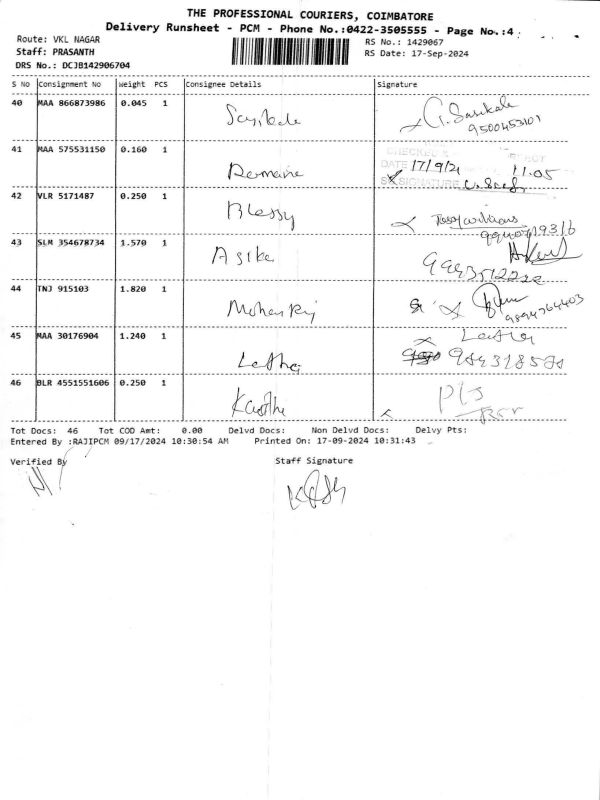 THE PROFESSIONAL COURIERS, COIMBATORE
Delivery Runsheet - PCM - Phone No.:0422-3505555 - Page No.:4
Route: VKL NAGAR
RS No.: 1429067
Staff: PRASANTH
RS Date: 17-Sep-2024
DRS No.: DCJB142906704
S No Consignment No Weight PCS Consignee Details Signature
40 MAA 866873986 0.045 1
G. Sasikala
9500453101
41 MAA 575531150 0.160 1
CHECKED
DATE 17/9/24 11.05
SIGNATURE
42 VLR 5171487 0.250 1 Blessy
43 SLM 354678734 1.570 1
44 TNJ 915103 1.820 1 Mohan Raj
9894764403
45 MAA 30176904 1.240 1 Latha
Latha
46 BLR 4551551606 0.250 1
Tot Docs: 46 Tot COD Amt: 0.00 Delvd Docs: Non Delvd Docs: Delvy Pts:
Entered By :RAJIPCM 09/17/2024 10:30:54 AM Printed On: 17-09-2024 10:31:43
Verified By Staff Signature